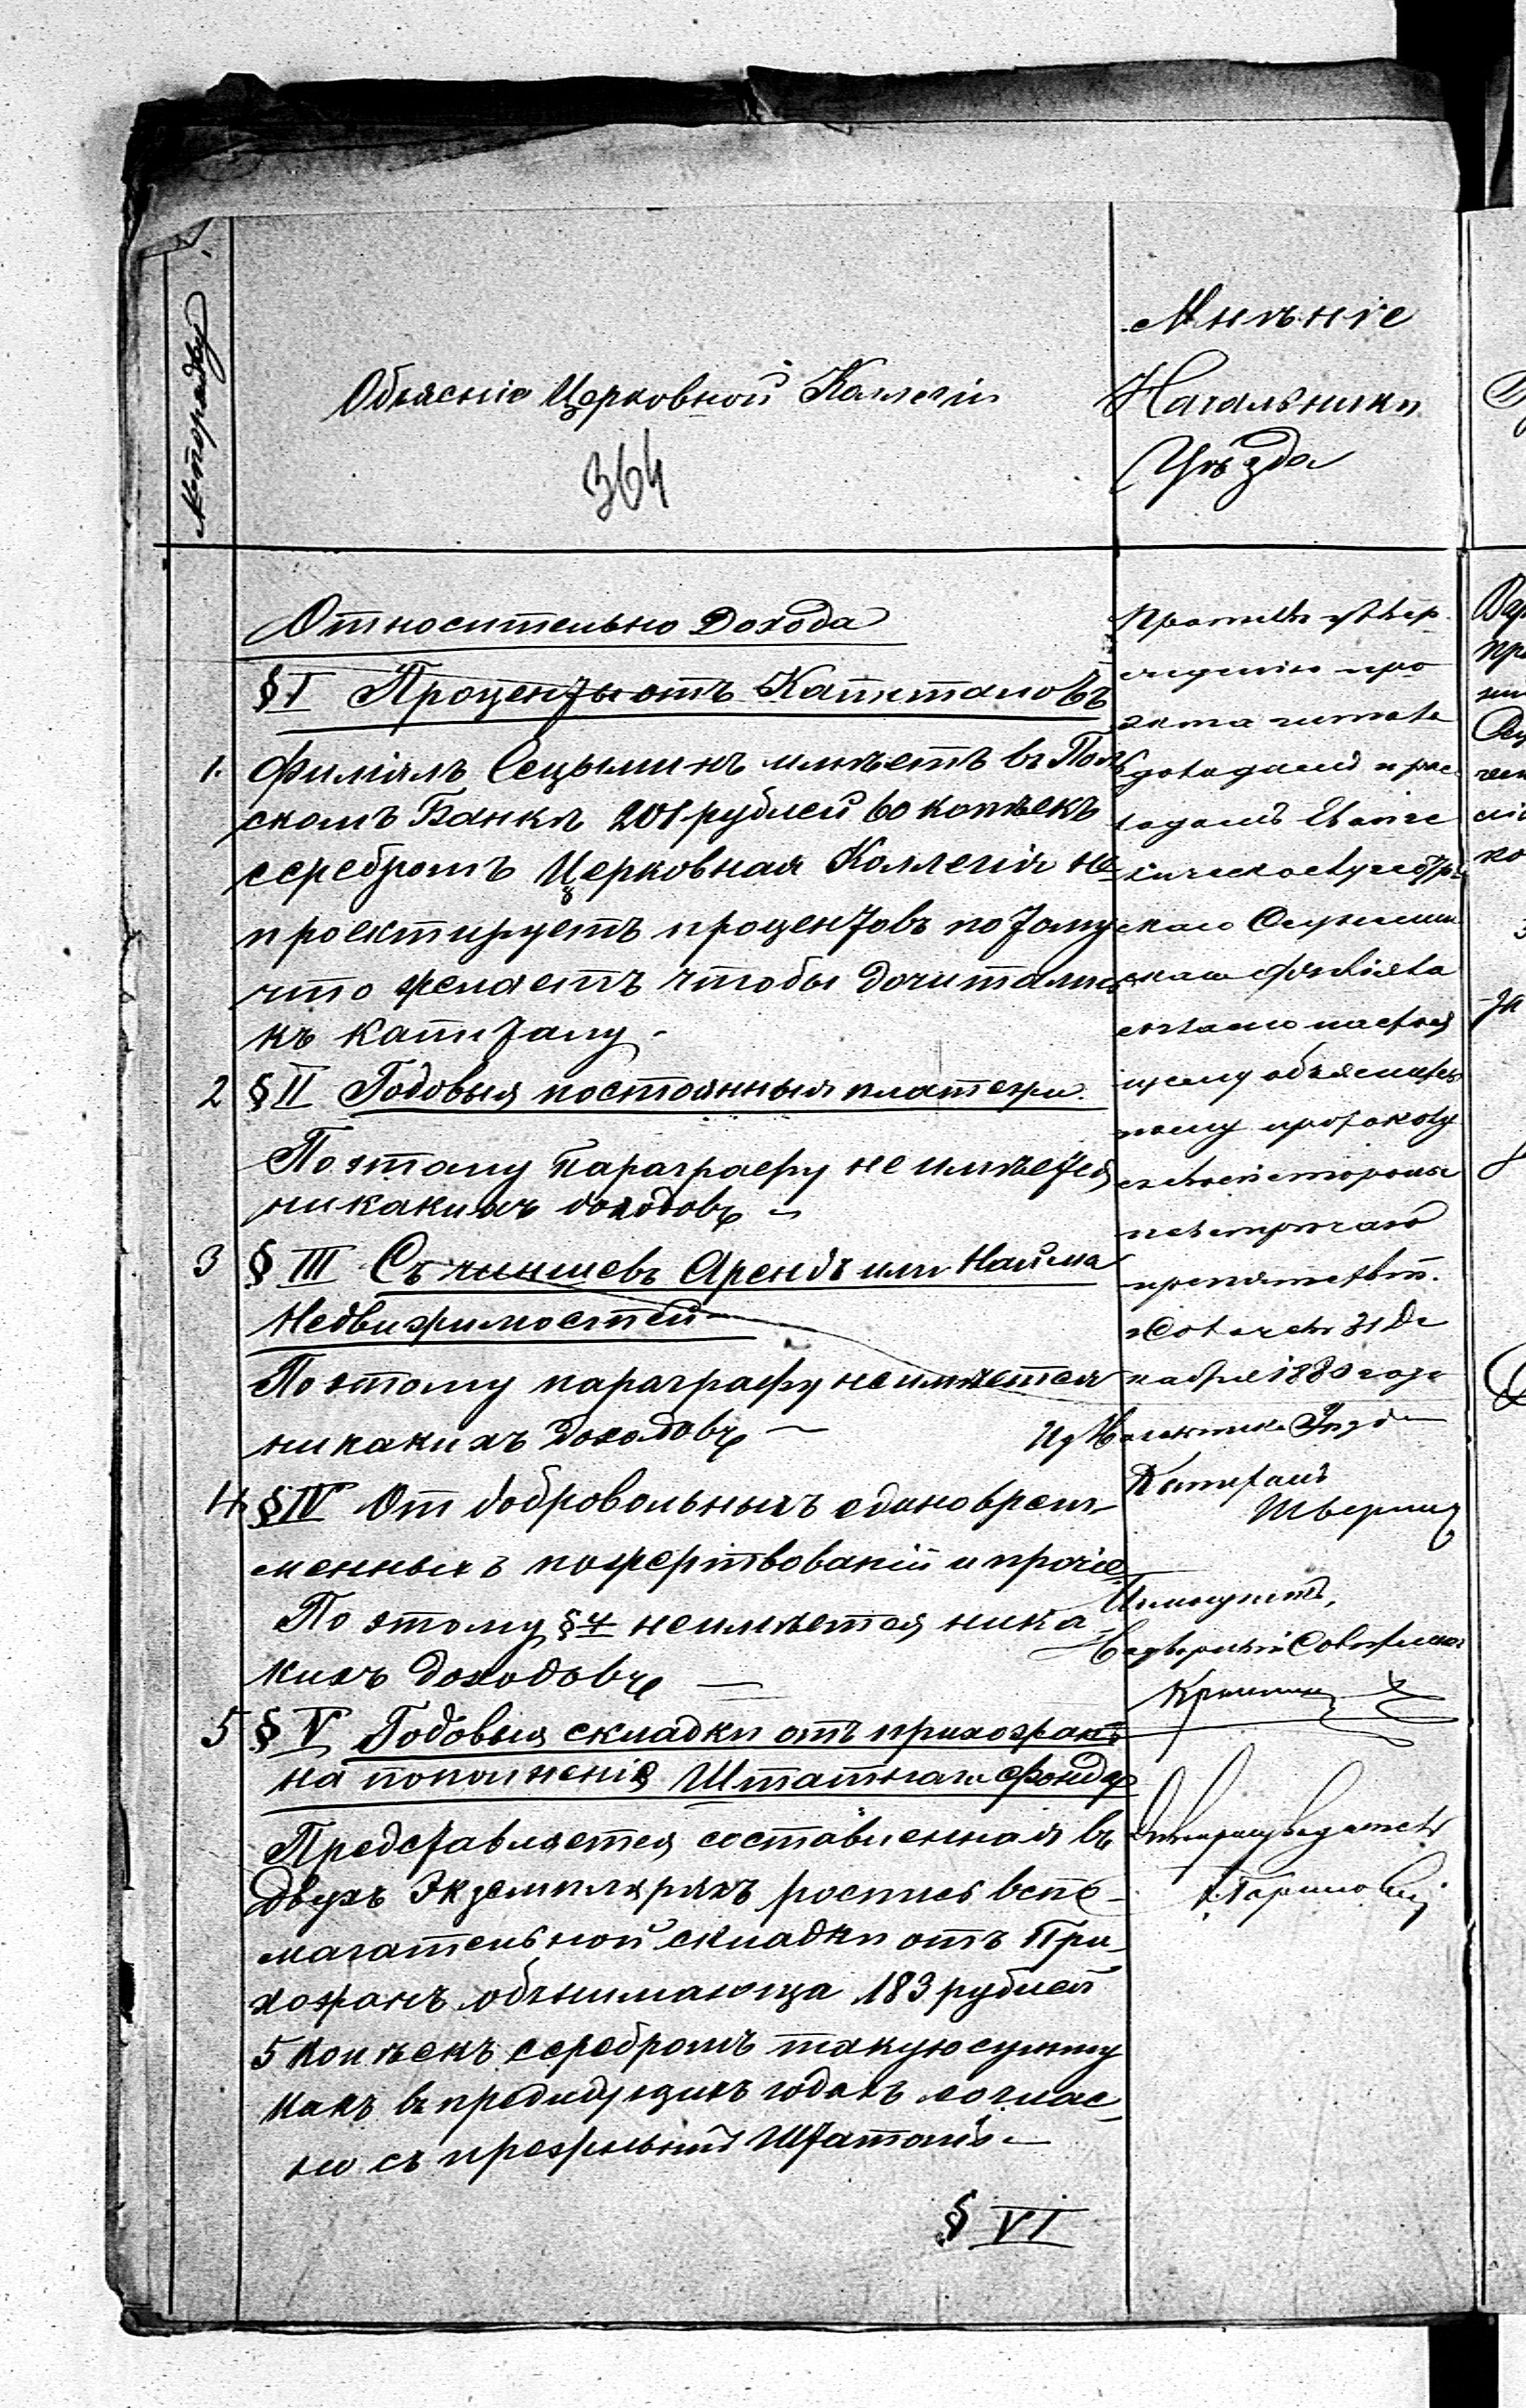 № попорядку
Объясніе Церковной Коллегіи
364
Мнѣніе
Начальника
Уѣзда
Относительно Дохода
§ I Проценты отъ Капиталовъ
1. Филіялъ Сецыминъ имѣетъ въ Поль
скомъ Банкѣ 201 рублей 60 копѣекъ
серебромъ Церковная Коллегія не
проектируетъ процентовъ по тому
что желаетъ чтобы дочитались
къ капиталу.
2 § II Годовыя постоянныя платежи.
По этому параграфу не имѣется
никакихъ доходовъ
3 § III Съ чиншевъ Арендъ или Найма
Недвижимостей
По этому параграфу не имѣется
никакихъ доходовъ —
4 § IV От добровольныхъ единоврем
менныхъ пожертвованій и прочіе
По этому § 4 не имѣется ника
кихъ доходовъ —
5 § V Годовыя складки отъ прихожанъ
на пополненія Штатнаго Фонда
Представляется составленная въ
двухъ Экземплярахъ роспись вспо-
магательной складки отъ При-
хожанъ объимающа 183 рублей
5 копѣекъ серебромъ такую сумму
какъ въ предидущихъ годахъ соглас
но съ прежнымъ Штатомъ —
§ VI
Противъ утвер
жденію про
экта штата
доходамъ и рас
ходамъ Еванге
скаго
скаго Филіяла
согласно настоя
щему объяснитель
ному протоколу
съ своей стороны
невстречаю
препятств.
31 Де
кабря 1880 года
Начальника Уѣзда
Капитанъ
Надворный Совѣтникъ